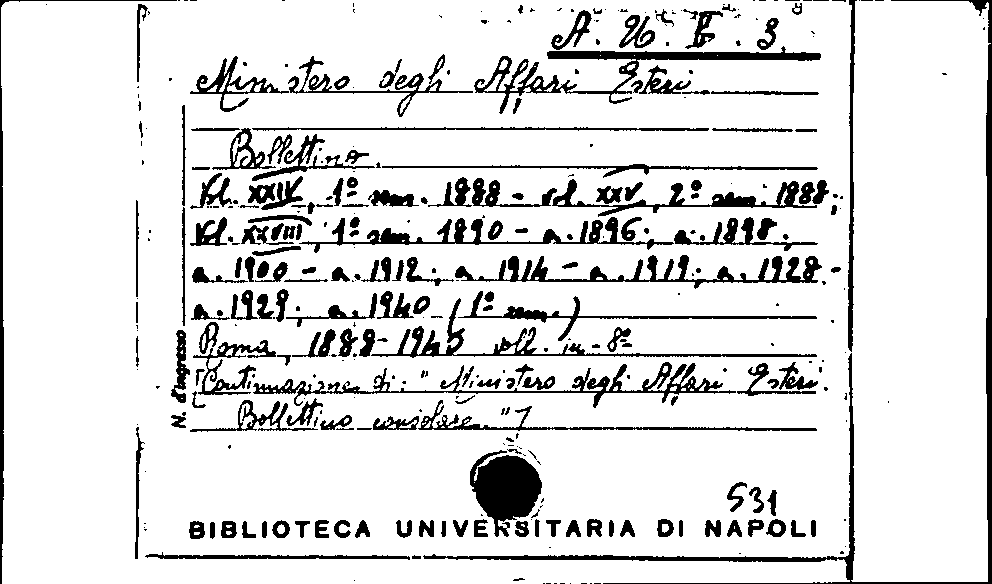 A. U. E. 3.
Ministero degli Affari Esteri.
Bollettino.
Vol. XXIV, 1º sem. 1888 - vol. XXV, 2º sem. 1888;
Vol. XXVIII, 1º sem. 1890 - a. 1896; a. 1898;
a. 1900 - a. 1912; a. 1914 - a. 1919; a. 1928 -
a. 1929; a. 1940 (1º sem.)
Roma, 1888-1940 voll. in-8º
[Continuazione di: "Ministero degli Affari Esteri.
Bollettino consolare."]
N. d'ingresso
531
BIBLIOTECA UNIVERSITARIA DI NAPOLI